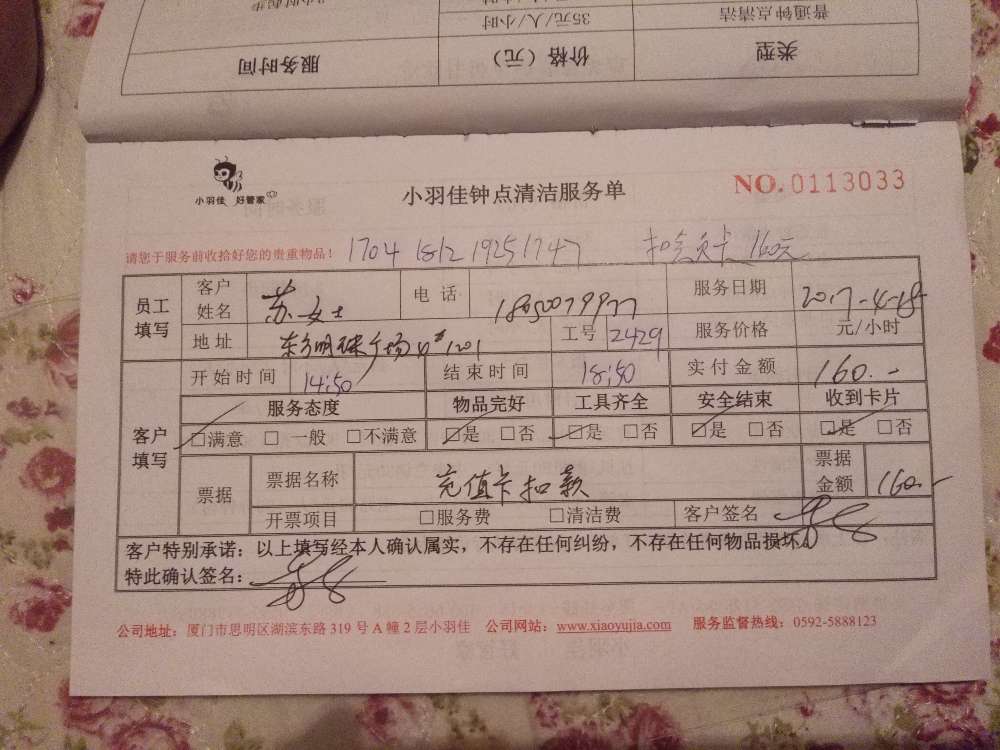 普通钟点清洁 35元/人/小时
类型 价格（元） 服务时间
小羽佳 好管家
小羽佳钟点清洁服务单
NO.0113033
请您于服务前收拾好您的贵重物品！ 1704 1812 19251747 扣会员卡 160元
员工填写
客户姓名 苏女士 电话 服务日期 2017-4-18
地址 工号 2429 服务价格 元/小时
客户填写
开始时间 14:50 结束时间 18:50 实付金额 160.-
服务态度 物品完好 工具齐全 安全结束 收到卡片
☑满意 □一般 □不满意 ☑是 □否 ☑是 □否 ☑是 □否 ☑是 □否
票据 票据名称 充值卡扣款 票据金额 160.-
开票项目 □服务费 □清洁费 客户签名
客户特别承诺：以上填写经本人确认属实，不存在任何纠纷，不存在任何物品损坏。
特此确认签名：
公司地址：厦门市思明区湖滨东路 319 号 A 幢 2 层小羽佳 公司网站：www.xiaoyujia.com 服务监督热线：0592-5888123